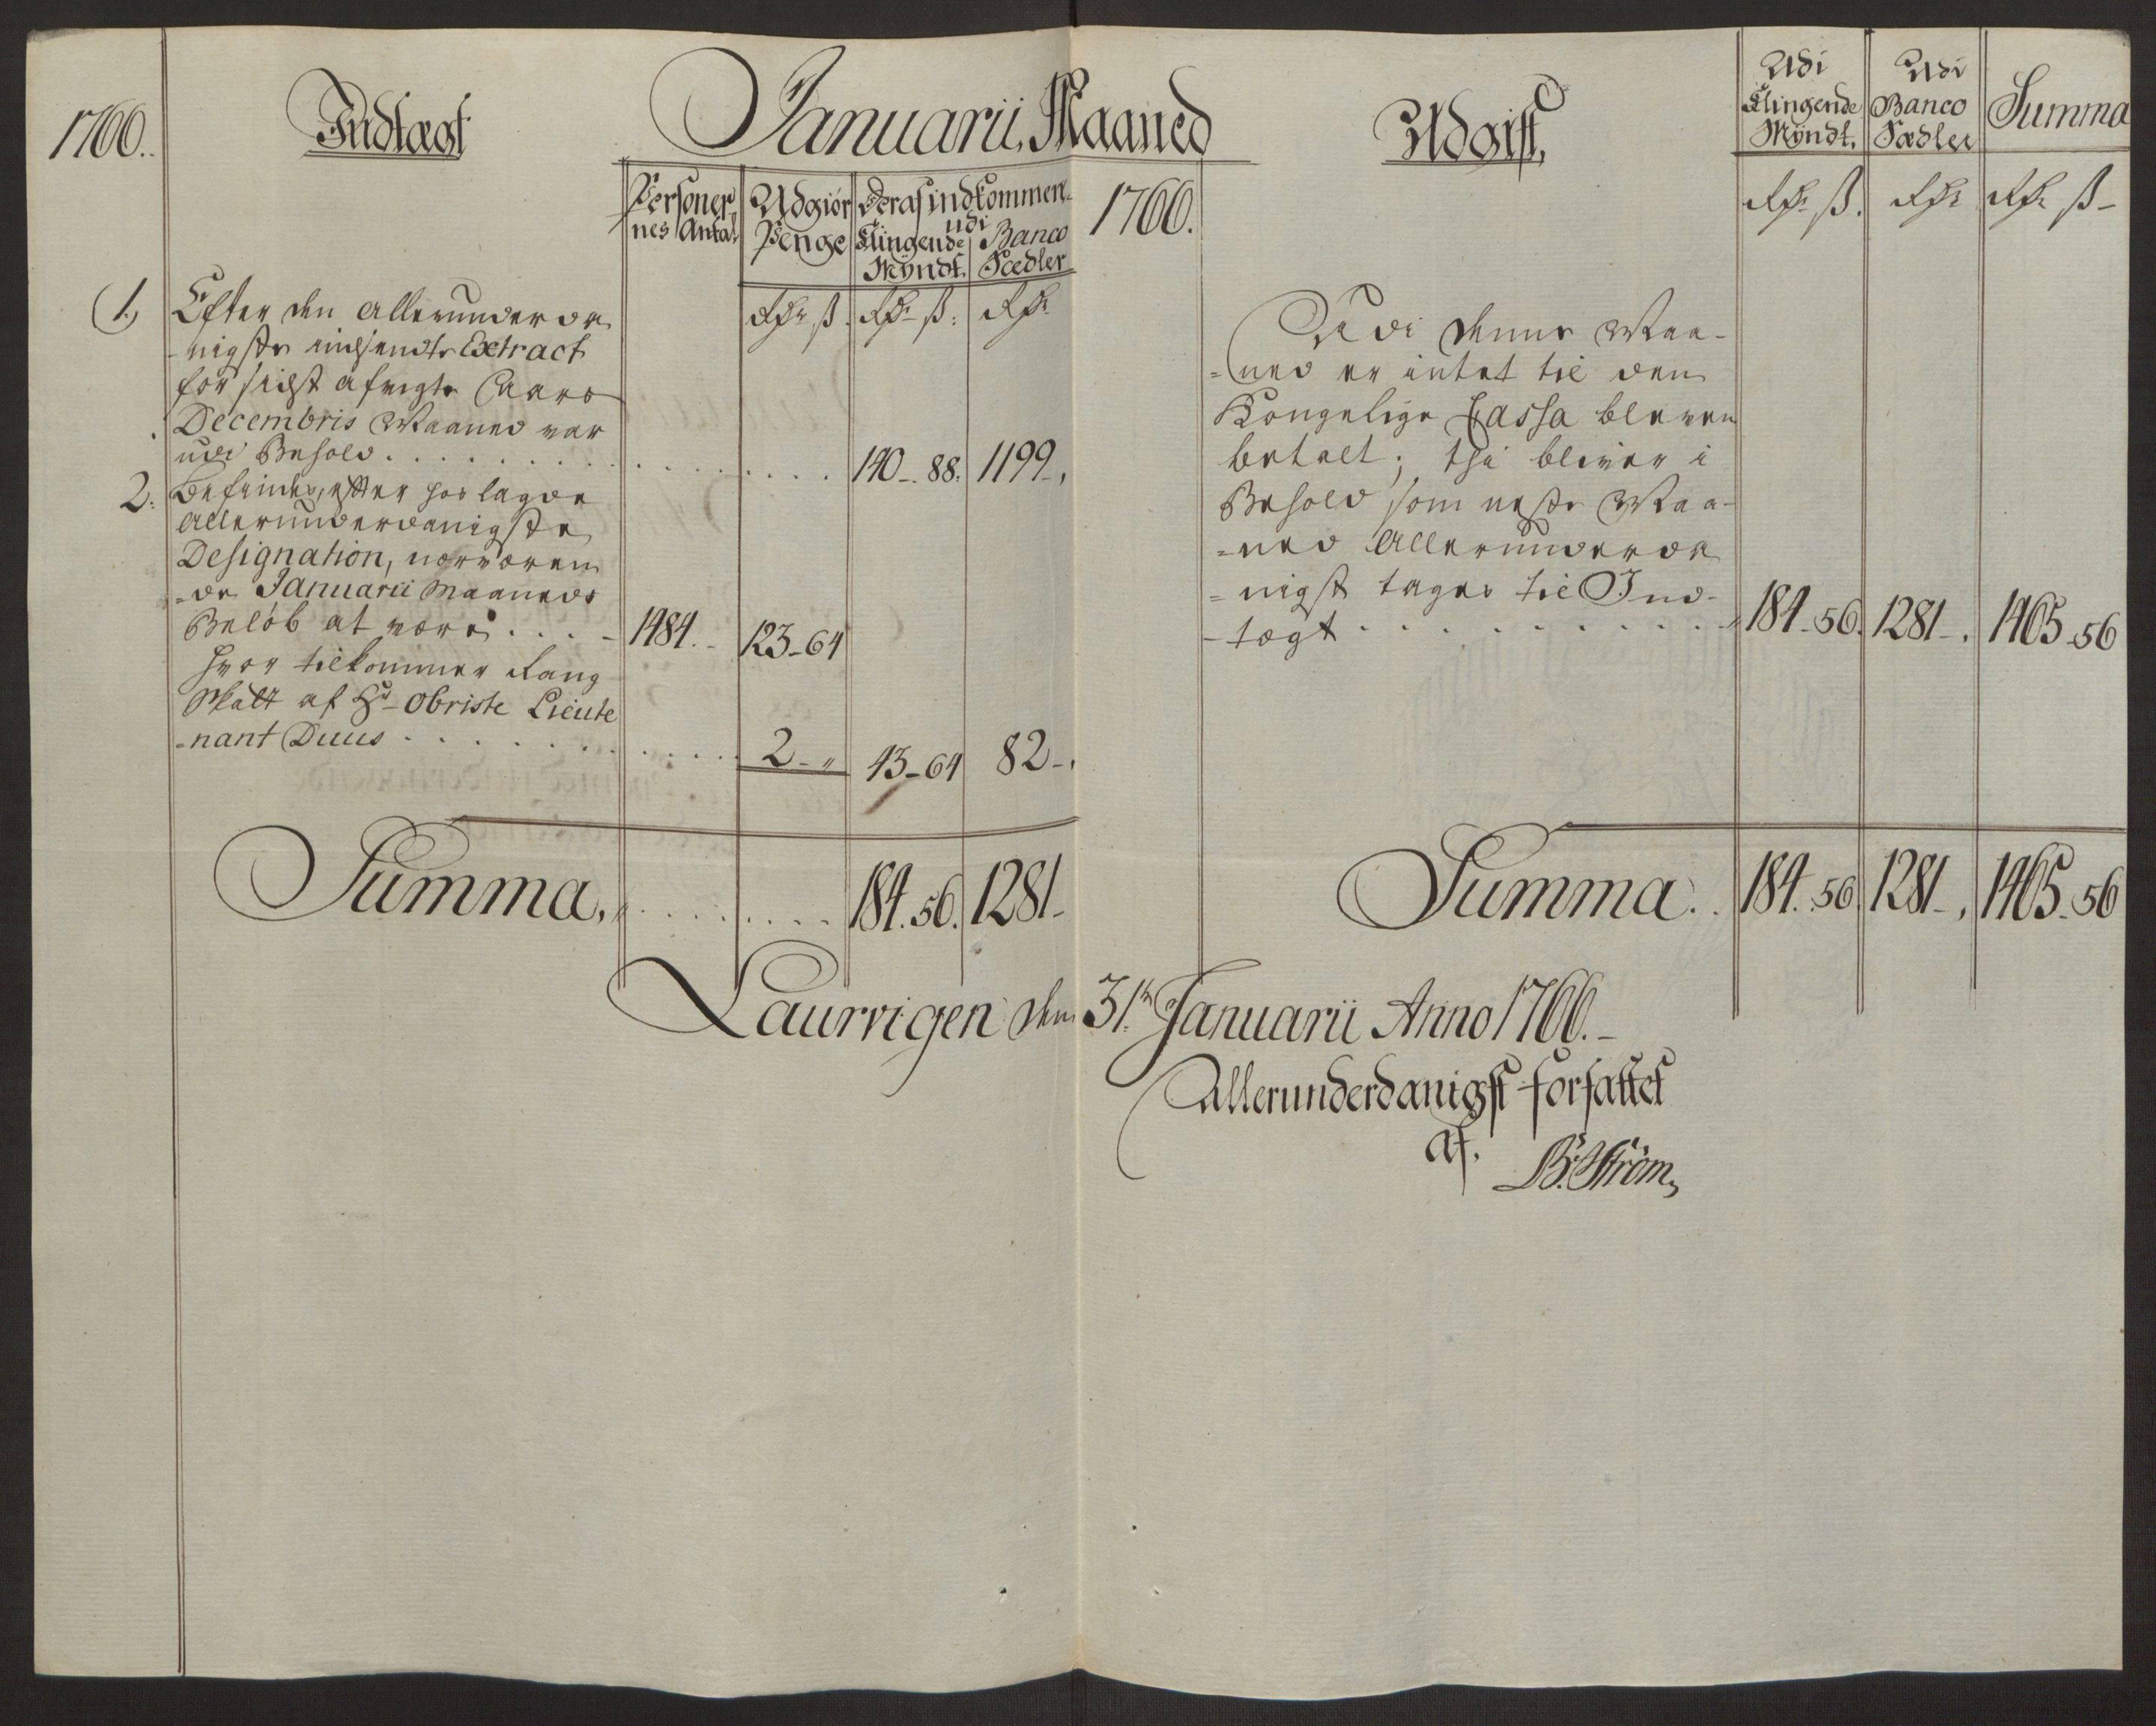 1766.
Indtægt
Januarii Maaned
Personer,
nes Antal
Udgiør
Penge
Deraf indkommen
udi
Klingende
Myndt.
Banco
Sædler
Rdr ß.
Rdr ß.
Rdr
1.
Efter den allerunderda
-nigste indsendte Extract
for sidst afvigte Aars
Decembris Maaned var
udi Behold . . . . . . . . . . . . 140-. 88. 1199-.
2.
Befindes, efter hos lagde
allerunderdanigste
Designation, nærværen
-de Januarii Maaneds
Beløb at være . . . . - 1484. - 123-64
hvor tilkommer Rang
Skatt af Hr. Obriste Lieute
-nant Duus . . . . . . . . . . . 2-" 43-64 82-.
Summa, . . . . . . . . 184. 56. 1281-
1766.
Udgift,
Udi
Klingende
Myndt.
Udi
Banco
Sædler
Summa
Rdr ß.
Rdr
Rdr ß-
Udi denne Maa-
=ned er intet til den
Kongelige Cassa bleven
betalt; thi bliver i
Behold som neste Maa-
=ned allerunderda
=nigst tages til Ind-
-tægt . . . . . . . . . . . 184-56. 1281-. 1465-56
Summa. . 184. 56. 1281-, 1465-56
Laurvigen den 31te Januarii Anno 1766.-
Allerunderdanigst forfattet
af.
B. Strøm,